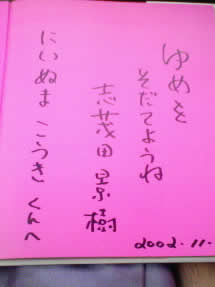 ゆめを
そだてようね
志茂田景樹
にいぬま こうき くんへ
2002.11.